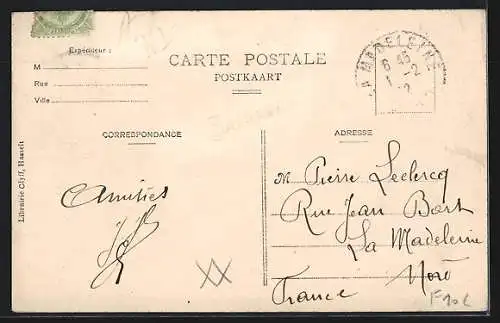 Expéditeur :
M
Rue
Ville
CARTE POSTALE
POSTKAART
LA MADELEINE
6 45
1 -2
CORRESPONDANCE
ADRESSE
Librairie Clyff, Hasselt
Amitiés
M Pierre Leclercq
Rue Jean Bart
La Madeleine
France Nord